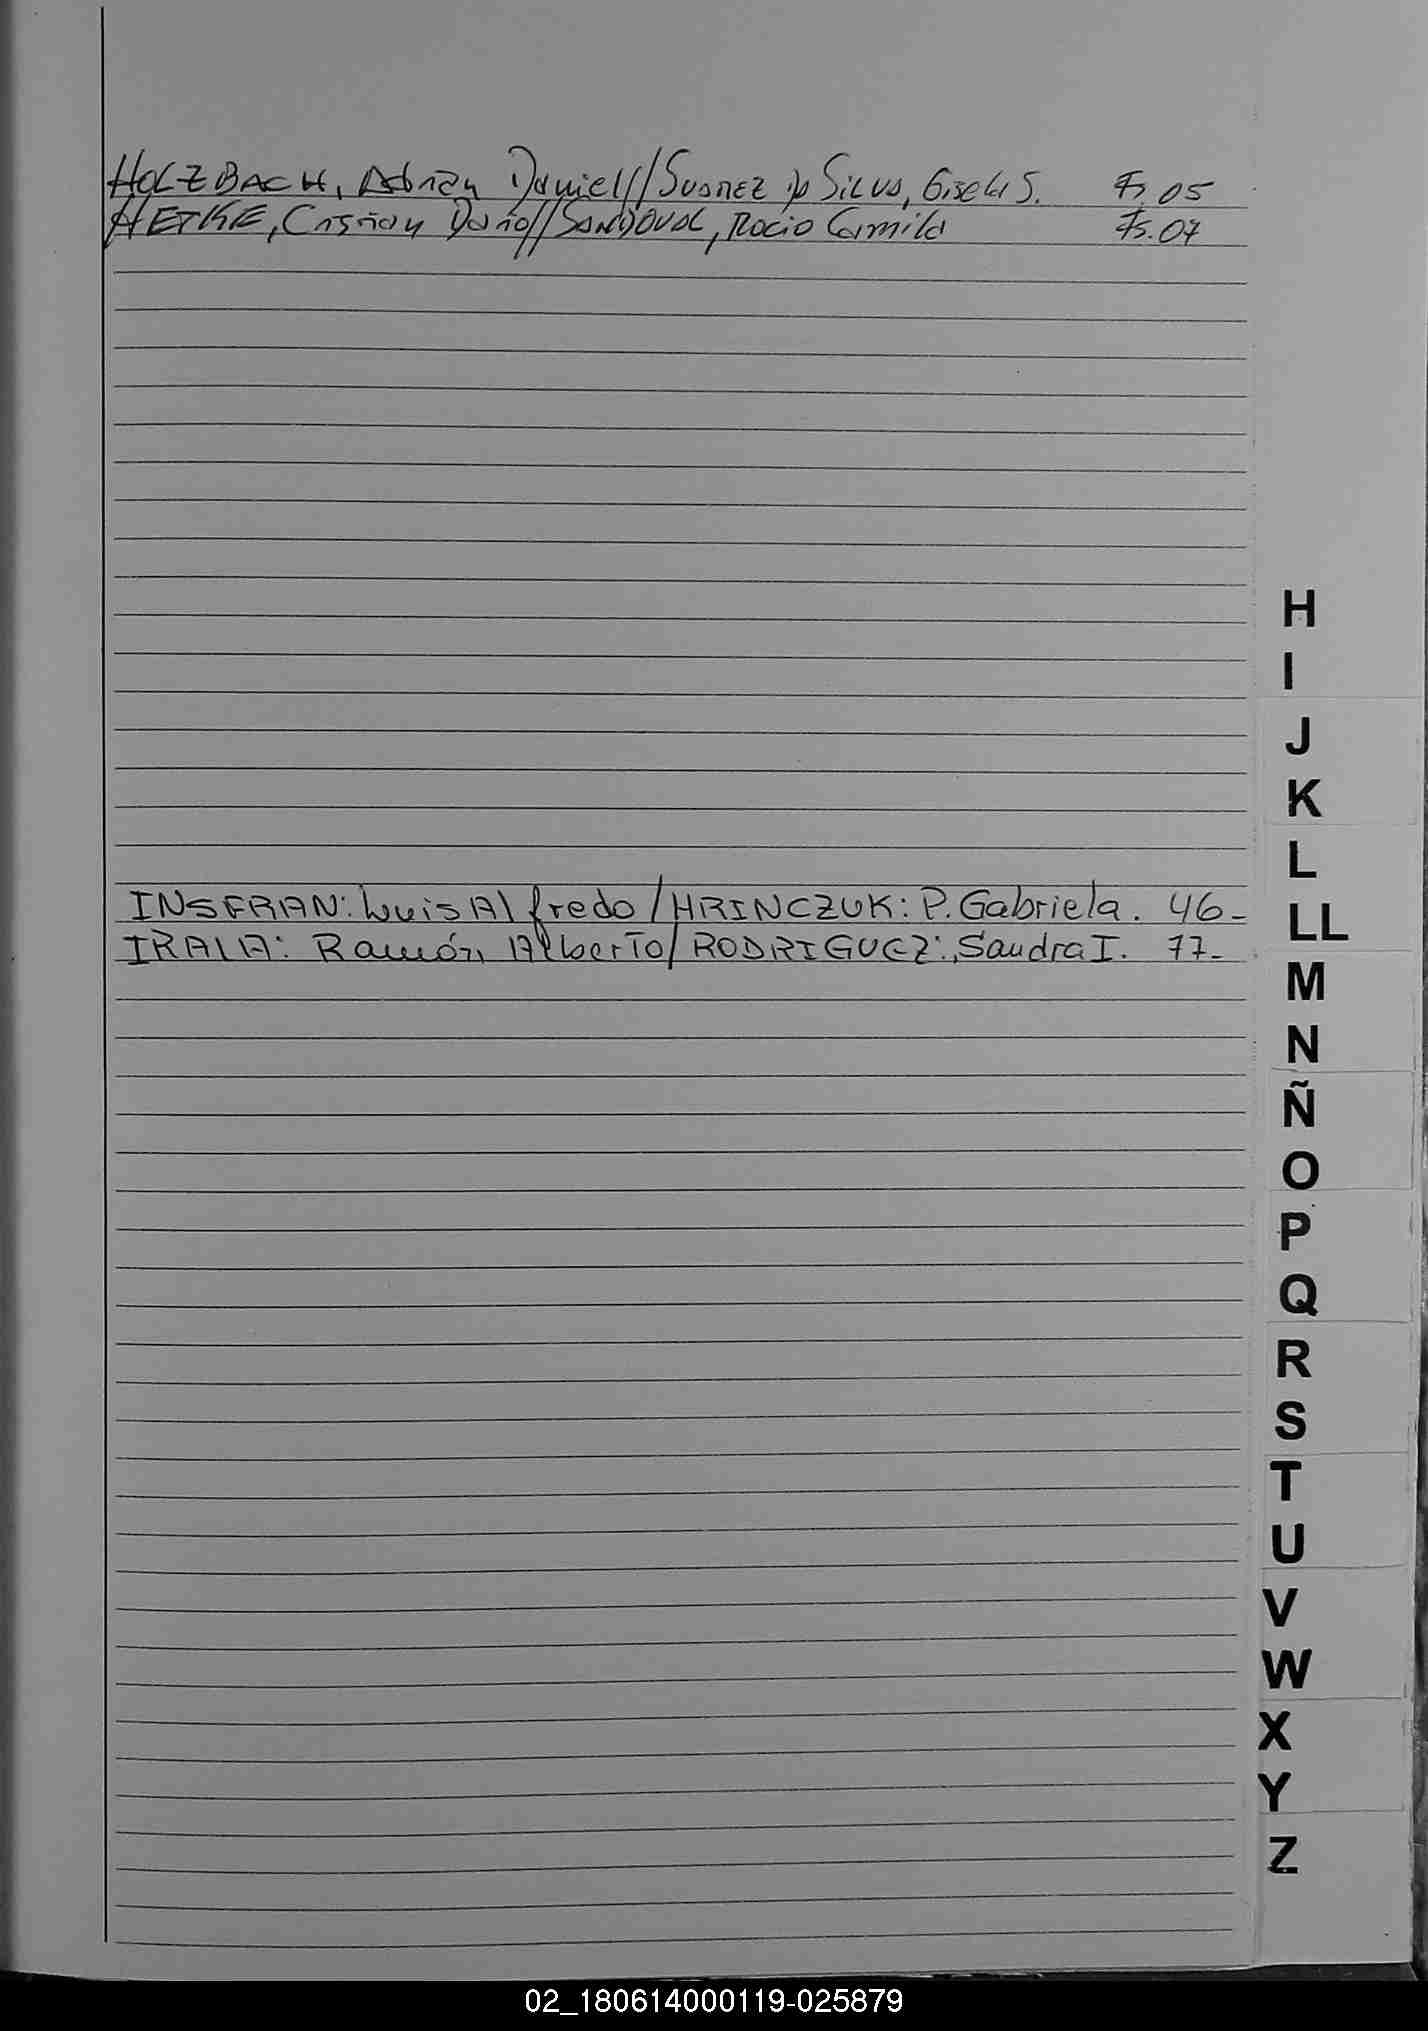 HOLZBACH, Adrián Daniel//Suarez Da Silva, Gisela S. Fs. 05
HETKE, Cristian Dario//SANDOVAL, Rocio Camila Fs. 07
H
I
J
K
L
INSFRAN: Luis Alfredo/HRINCZUK: P. Gabriela. 46-
LL
IRALA: Ramón Alberto/RODRIGUEZ:, Sandra I. 77-
M
N
Ñ
O
P
Q
R
S
T
U
V
W
X
Y
Z
02_180614000119-025879